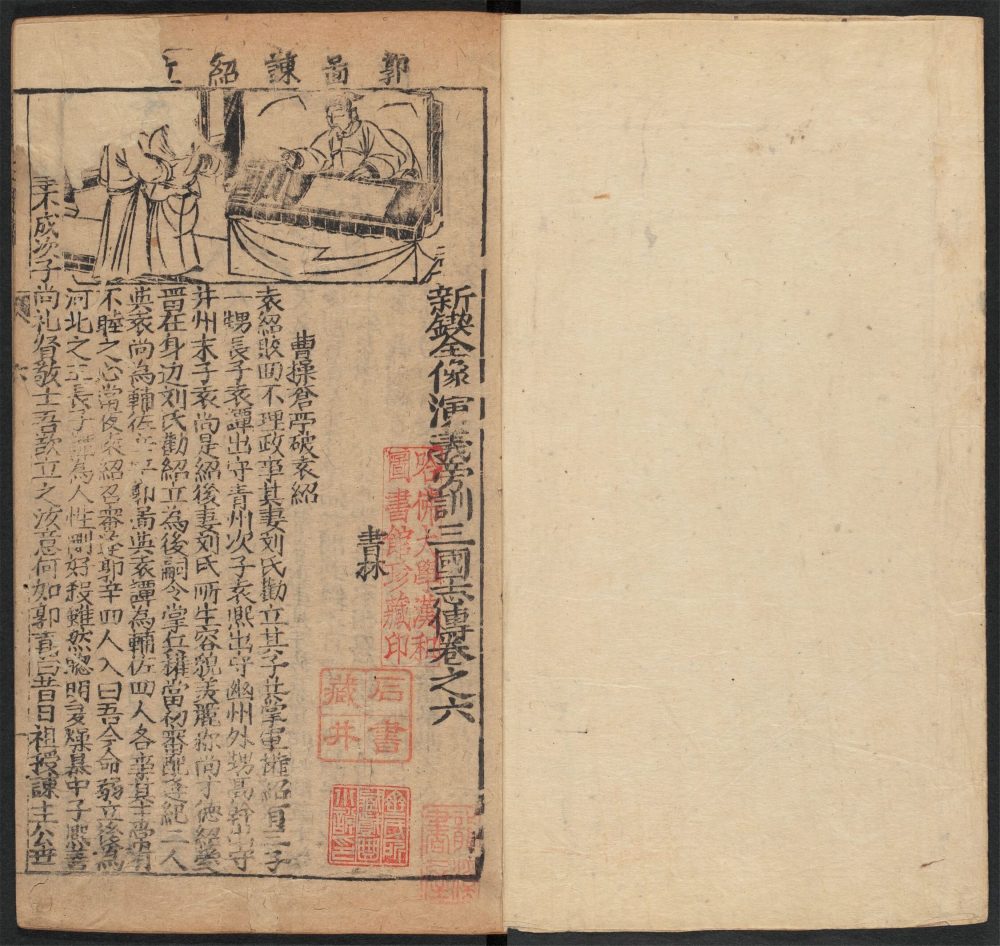 郭啚諫紹立
新鍥全像演義旁訓三國志傳卷之六
書林
曹操倉亭破袁紹
袁紹敗回不理政事其妻刘氏勸立其子共掌軍權紹有三子
一甥長子袁譚出守青州次子袁熙出守幽州外甥高幹出守
并州末子袁尚是紹後妻刘氏所生容貌羙麗称尚才德紹愛
畄在身边刘氏勸紹立為後嗣令掌兵權當初審配逢紀二人
與袁尚為輔佐辛平郭啚與袁譚為輔佐四人各幸其主常有
不睦之心當夜袁紹召審逢郭辛四人入曰吾今命弱立後為
河北之主長子譚為人性剛好殺雖然聰明多燥暴中子熙善
柔不成次子尚礼賢敬士吾欲立之汝意何如郭啚曰昔日祖授諫主公世
哈佛大學漢和
圖書館珍藏印
石書
藏井